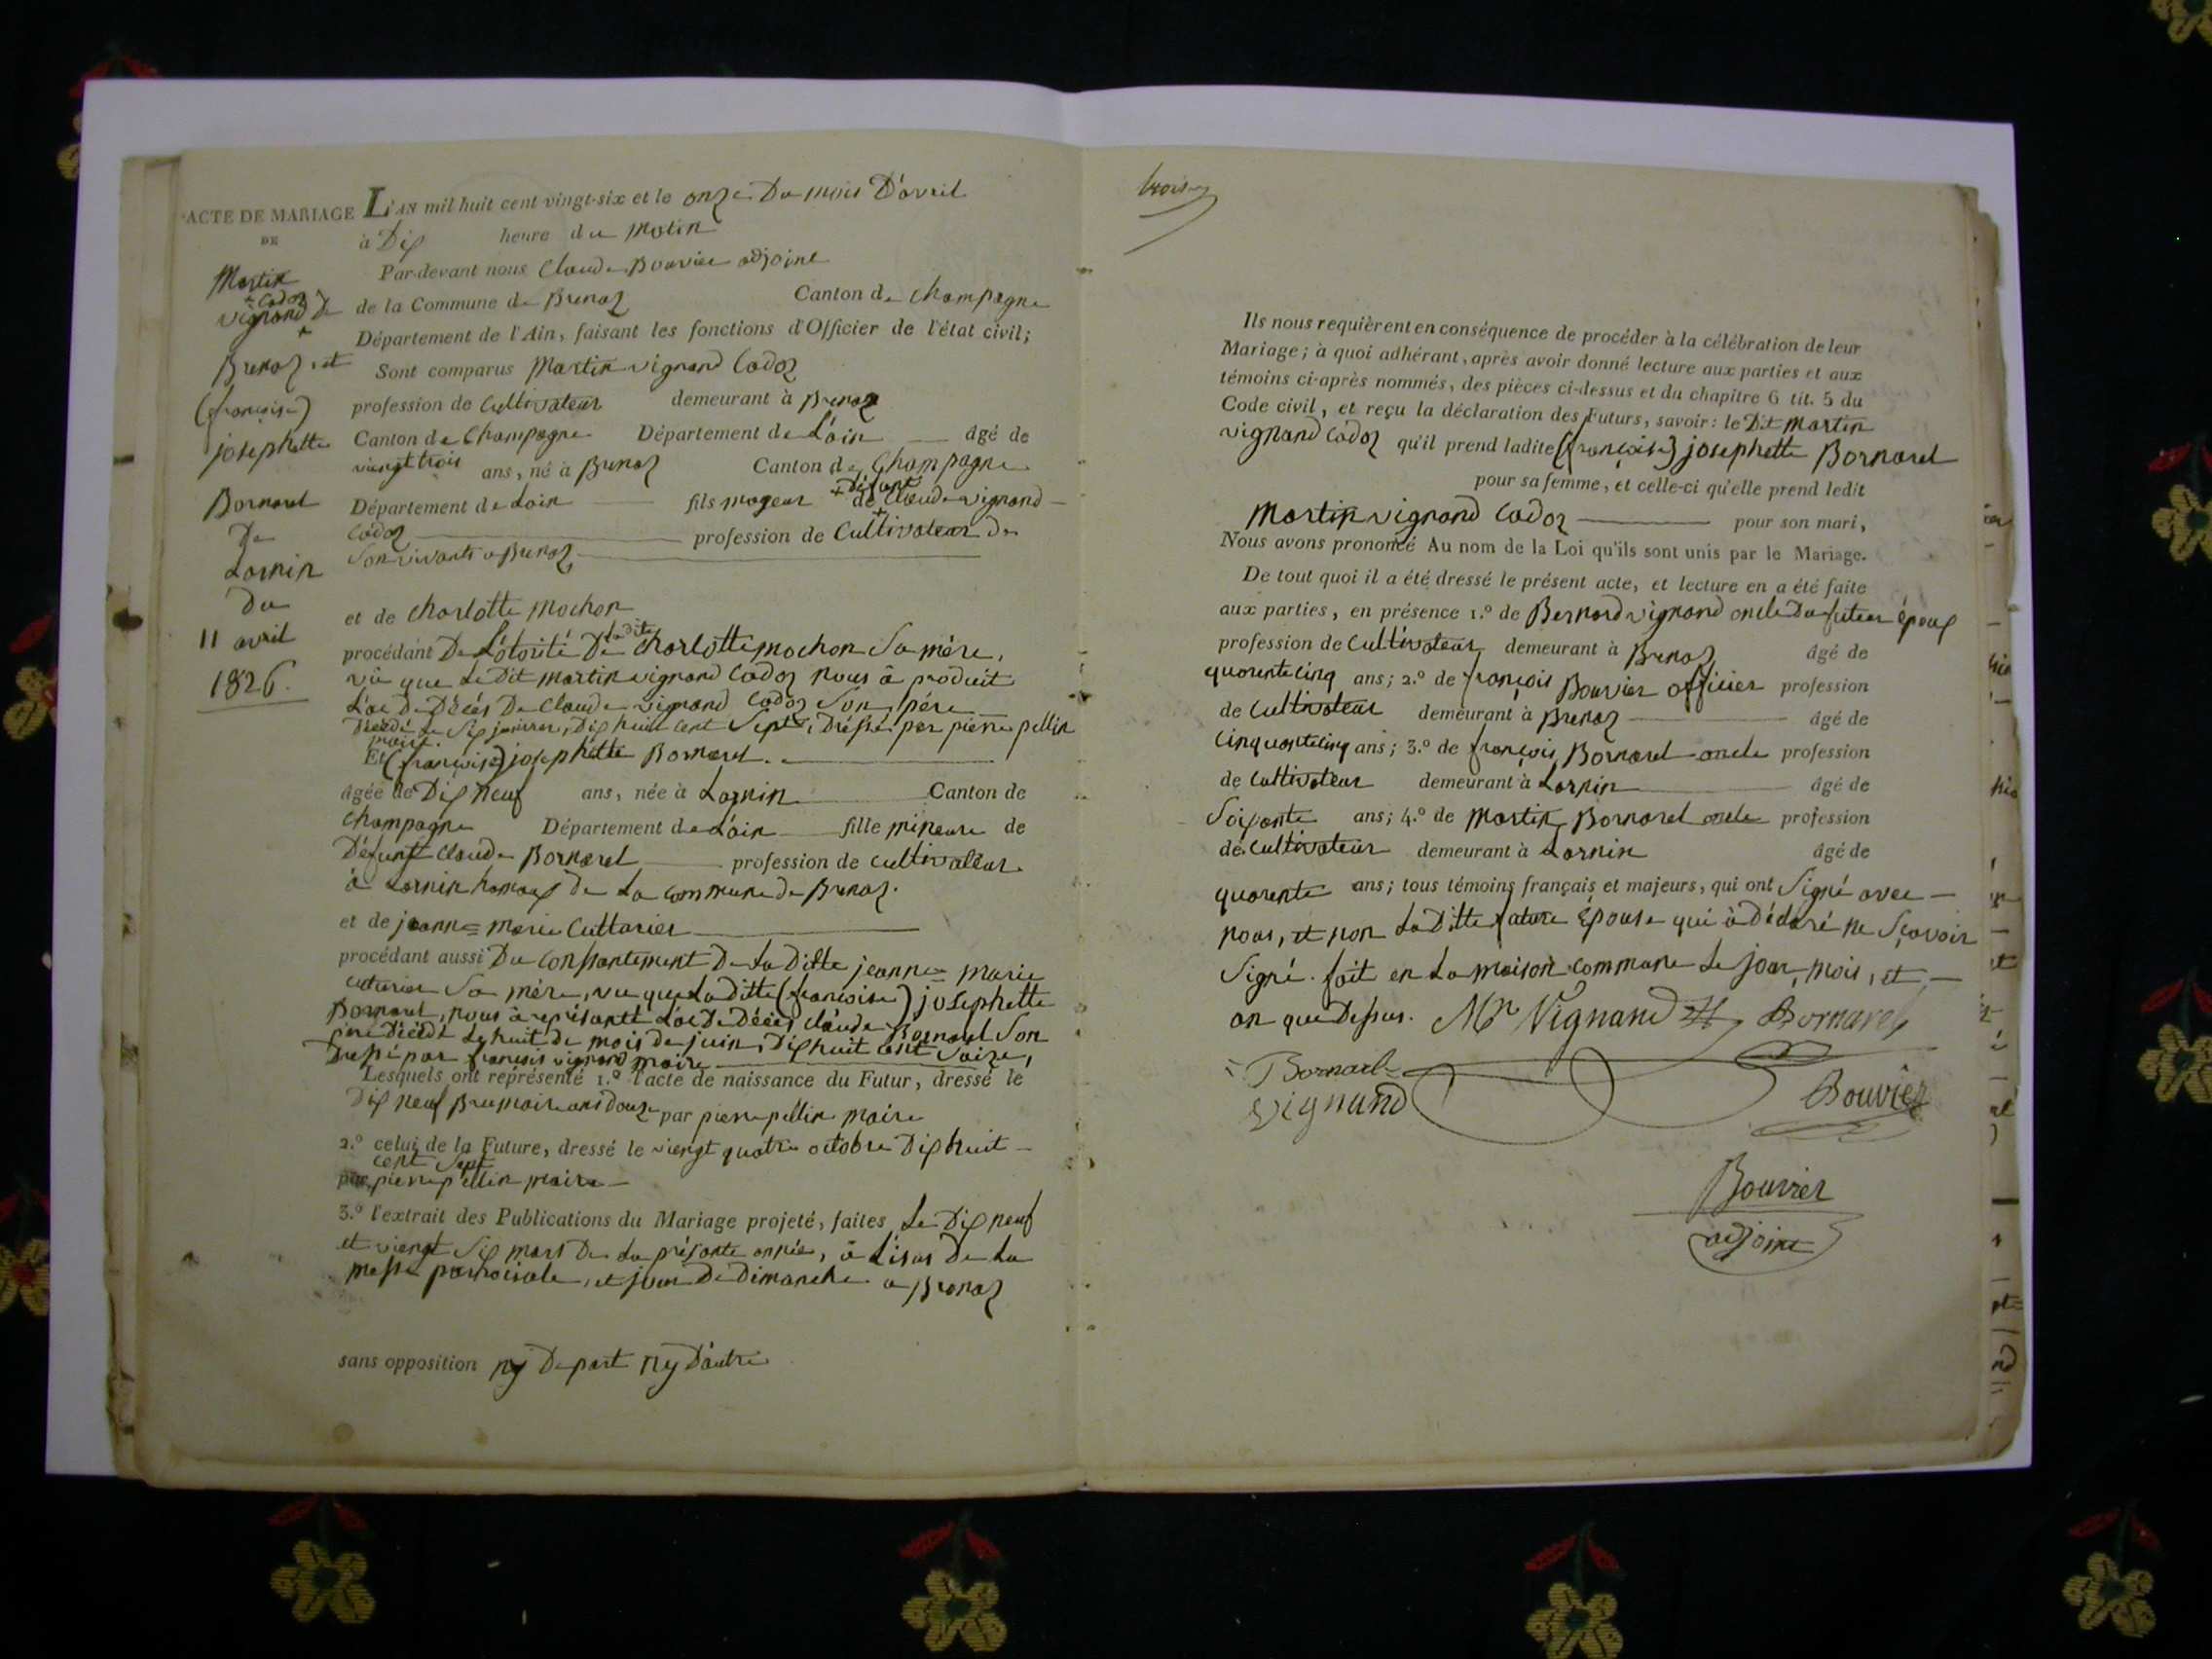 ACTE DE MARIAGE
DE
Martin
+ Cadoz
vignand De
+
Brenaz, et
(françoise)
josephette
Bornarel
De
Lormin
Du
11 avril
1826.
L'AN mil huit cent vingt-six et le onze Du mois D'avril
à Dix heure du matin
Par-devant nous Claude Bouvier adjoint
de la Commune de Brenaz Canton de Champagne
Département de l'Ain, faisant les fonctions d'Officier de l'état civil;
Sont comparus Martin vignand Cadoz
profession de Cultivateur demeurant à Brenaz
Canton de Champagne Département de L'ain âgé de
viengt trois ans, né à Brenaz Canton de Champagne
Département de Lain fils mageur de + Défunt Claude vignand
Cadoz profession de Cultivateur De
Son vivant a Brenaz
et de Charlotte Mochon
procédant De L'otorité De Ladite Charlotte mochon Sa mère,
vu que Le Dit Martin vignand Cadoz nous à produit
L'ac De Décés De Claude vignand Cadoz Son père
Décédé Le Six janvier, Dix huit Cent Sept, Dréssé par pierre pellin
maire.
Et (françoise) josephette Bornarel.
âgée de Dix neuf ans, née à Lormin Canton de
Champagne Département de L'ain fille mineure de
Défunt Claude Bornarel profession de Cultivateur
à Lormin hamaux De La Commune De Brenaz.
et de jeanne = marie Cuttarier
procédant aussi Du Consantement De La Ditte jeanne = marie
Cutarier Sa mère, vu que La Ditte (françoise) josephette
Bornarel, nous à représanté L'ac De Décés Claude Bornarel Son
père Décédé Le huit du mois de juin, Dix huit Cent Saize,
Dressé par françois vignand maire
Lesquels ont représenté 1.º l'acte de naissance du Futur, dressé le
Dix neuf Brumaire ans Douze par pierre pellin maire
2.º celui de la Future, dressé le viengt quatre octobre Dix huit
cent Sept
par pierre pellin maire
3.º l'extrait des Publications du Mariage projeté, faites Le Dix neuf
et viengt Six mars De La présante année, à L'isus De La
messe parroisiale, et jour De Dimanche a Brenaz
sans opposition ny De part ny D'autre
trois
Ils nous requièrent en conséquence de procéder à la célébration de leur
Mariage; à quoi adhérant, après avoir donné lecture aux parties et aux
témoins ci-après nommés, des pièces ci-dessus et du chapitre 6 tit. 5 du
Code civil, et reçu la déclaration des Futurs, savoir: le Dit Martin
vignand Cadoz qu'il prend ladite (françoise) josephette Bornarel
pour sa femme, et celle-ci qu'elle prend ledit
Martin vignand Cadoz pour son mari,
Nous avons prononcé Au nom de la Loi qu'ils sont unis par le Mariage.
De tout quoi il a été dressé le présent acte, et lecture en a été faite
aux parties, en présence 1.º de Bernard vignand oncle Du futeur époux
profession de Cultivateur demeurant à Brenaz âgé de
quarente Cinq ans; 2.º de françois Bouvier officier profession
de Cultivateur demeurant à Brenaz âgé de
Cinquante Cinq ans; 3.º de françois Bornarel oncle profession
de Cultivateur demeurant à Lormin âgé de
Soixante ans; 4.º de Martin Bornarel oncle profession
de Cultivateur demeurant à Lormin âgé de
quarente ans; tous témoins français et majeurs, qui ont Signé avec
nous, et non La Ditte future Épouse qui à Déclaré ne Sçavoir
Signé. fait en La maison commune Le jour, mois, et
an que Dessus. Mn Vignand Bornarel
Bornarel
vignand Bouvier
Bouvier
adjoint